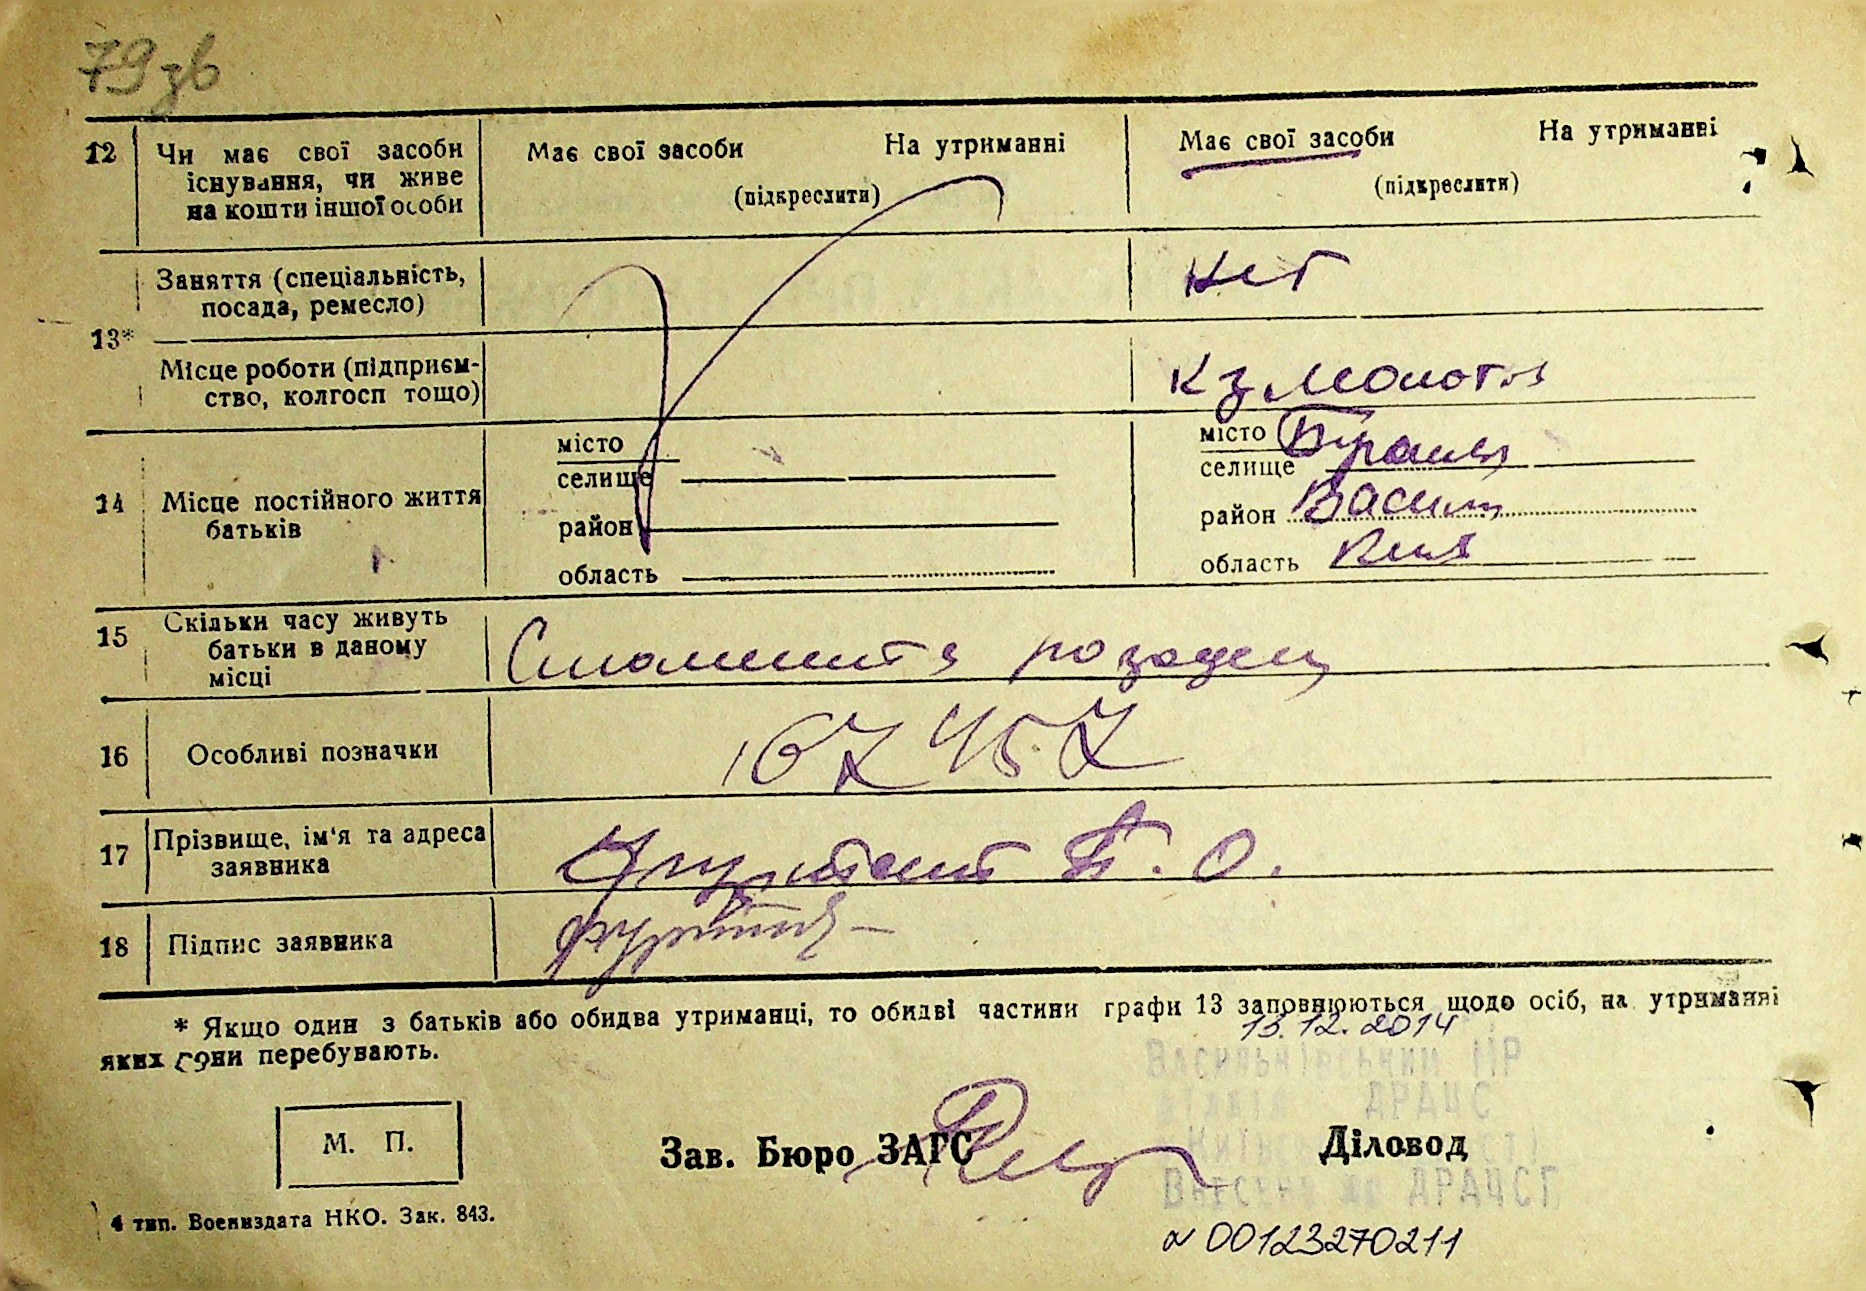 79 зв
12 Чи має свої засоби існування, чи живе на кошти іншої особи
Має свої засоби На утриманні
(підкреслити)
Має свої засоби На утриманні
(підкреслити)
13* Заняття (спеціальність, посада, ремесло)
нет
Місце роботи (підприєм-
ство, колгосп тощо)
кз Молотов
14 Місце постійного життя
батьків
місто
селище
район
область
місто
селище
район Васильк
область Київ
15 Скільки часу живуть
батьки в даному
місці
16 Особливі позначки
167457
17 Прізвище, ім'я та адреса
заявника
П. О.
18 Підпис заявника
* Якщо один з батьків або обидва утриманці, то обидві частини графи 13 заповнюються щодо осіб, на утриманні
яких вони перебувають.
13.12.2014
Васильківський МР
відділ ДРАЦС
Внесено до ДРАЦСГ
М. П.
Зав. Бюро ЗАГС
Діловод
4 тип. Воениздата НКО. Зак. 843.
№ 00123270211